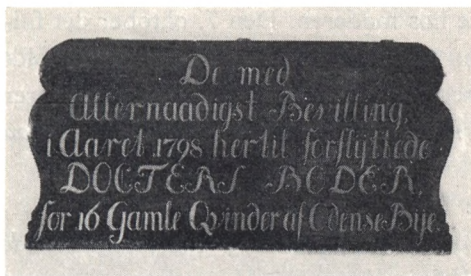 De med
Allernaadigst Bevilling,
i Aaret 1798 hertil forflÿttede
DOCTERS BODER,
for 16 Gamle Qvinder af Odense Bÿe.